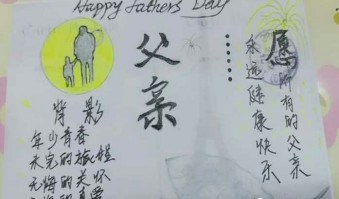 Happy Fathers Day
父亲
愿所有的父亲
永远健康快乐
背影
年少青春
未完的旅程
无悔的关怀